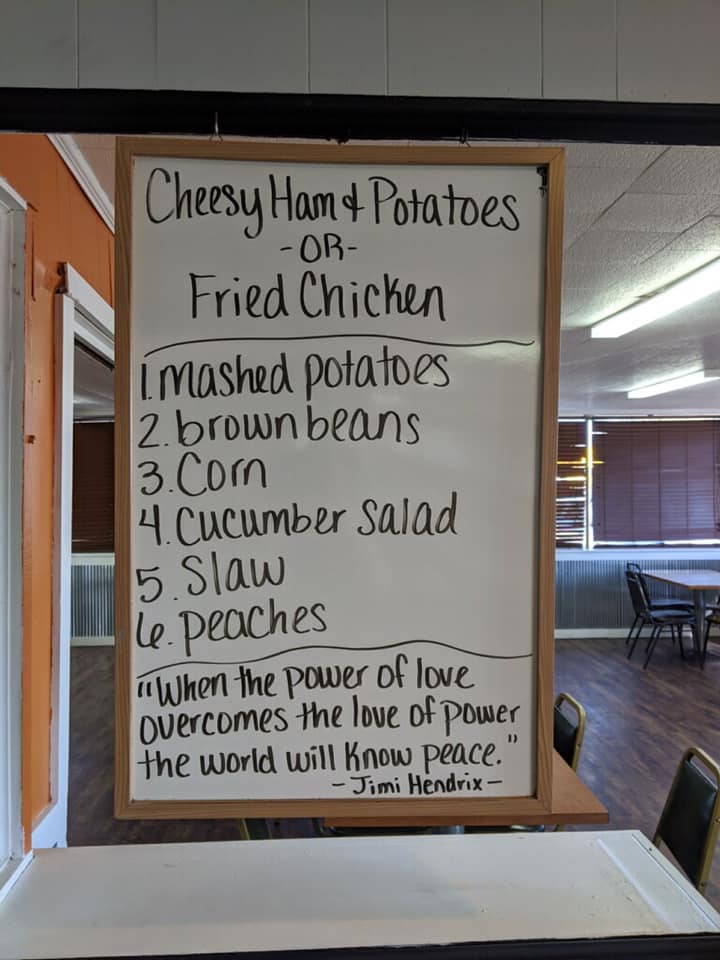 Cheesy Ham & Potatoes
-OR-
Fried Chicken
1. mashed potatoes
2. brown beans
3. Corn
4. Cucumber Salad
5. Slaw
6. peaches
"When the power of love
overcomes the love of power
the world will know peace."
- Jimi Hendrix -